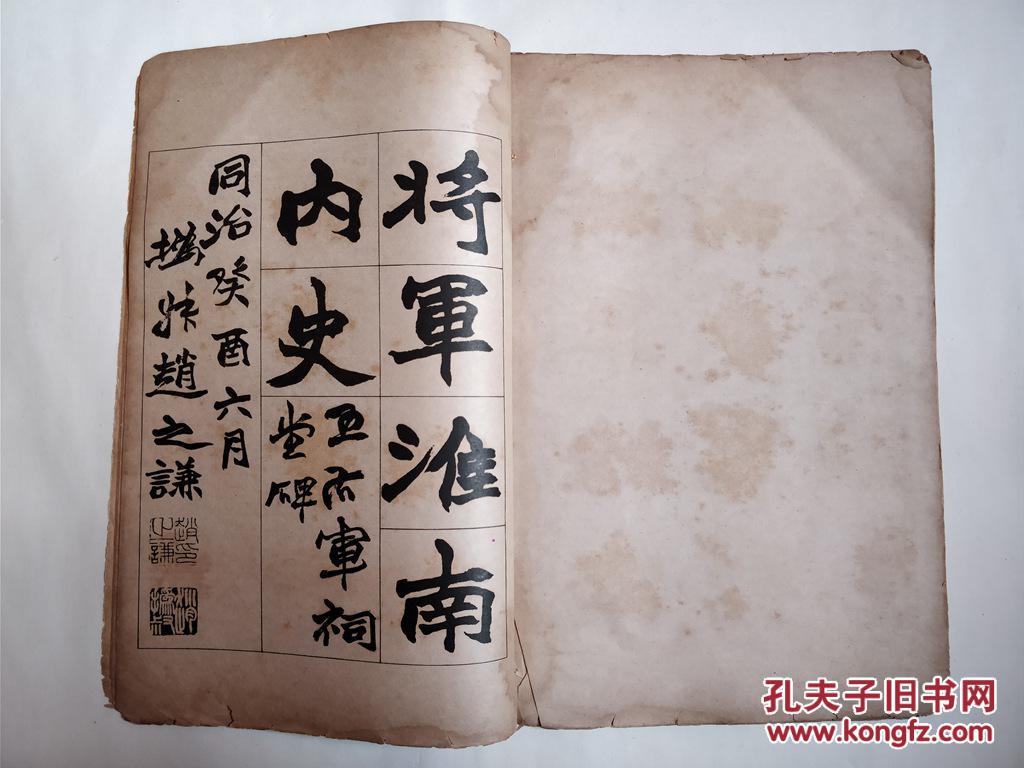 将軍淮南
内史
王右軍祠
堂碑
同治癸酉六月
撝叔趙之謙
趙印之謙
趙撝叔
孔夫子旧书网
www.kongfz.com